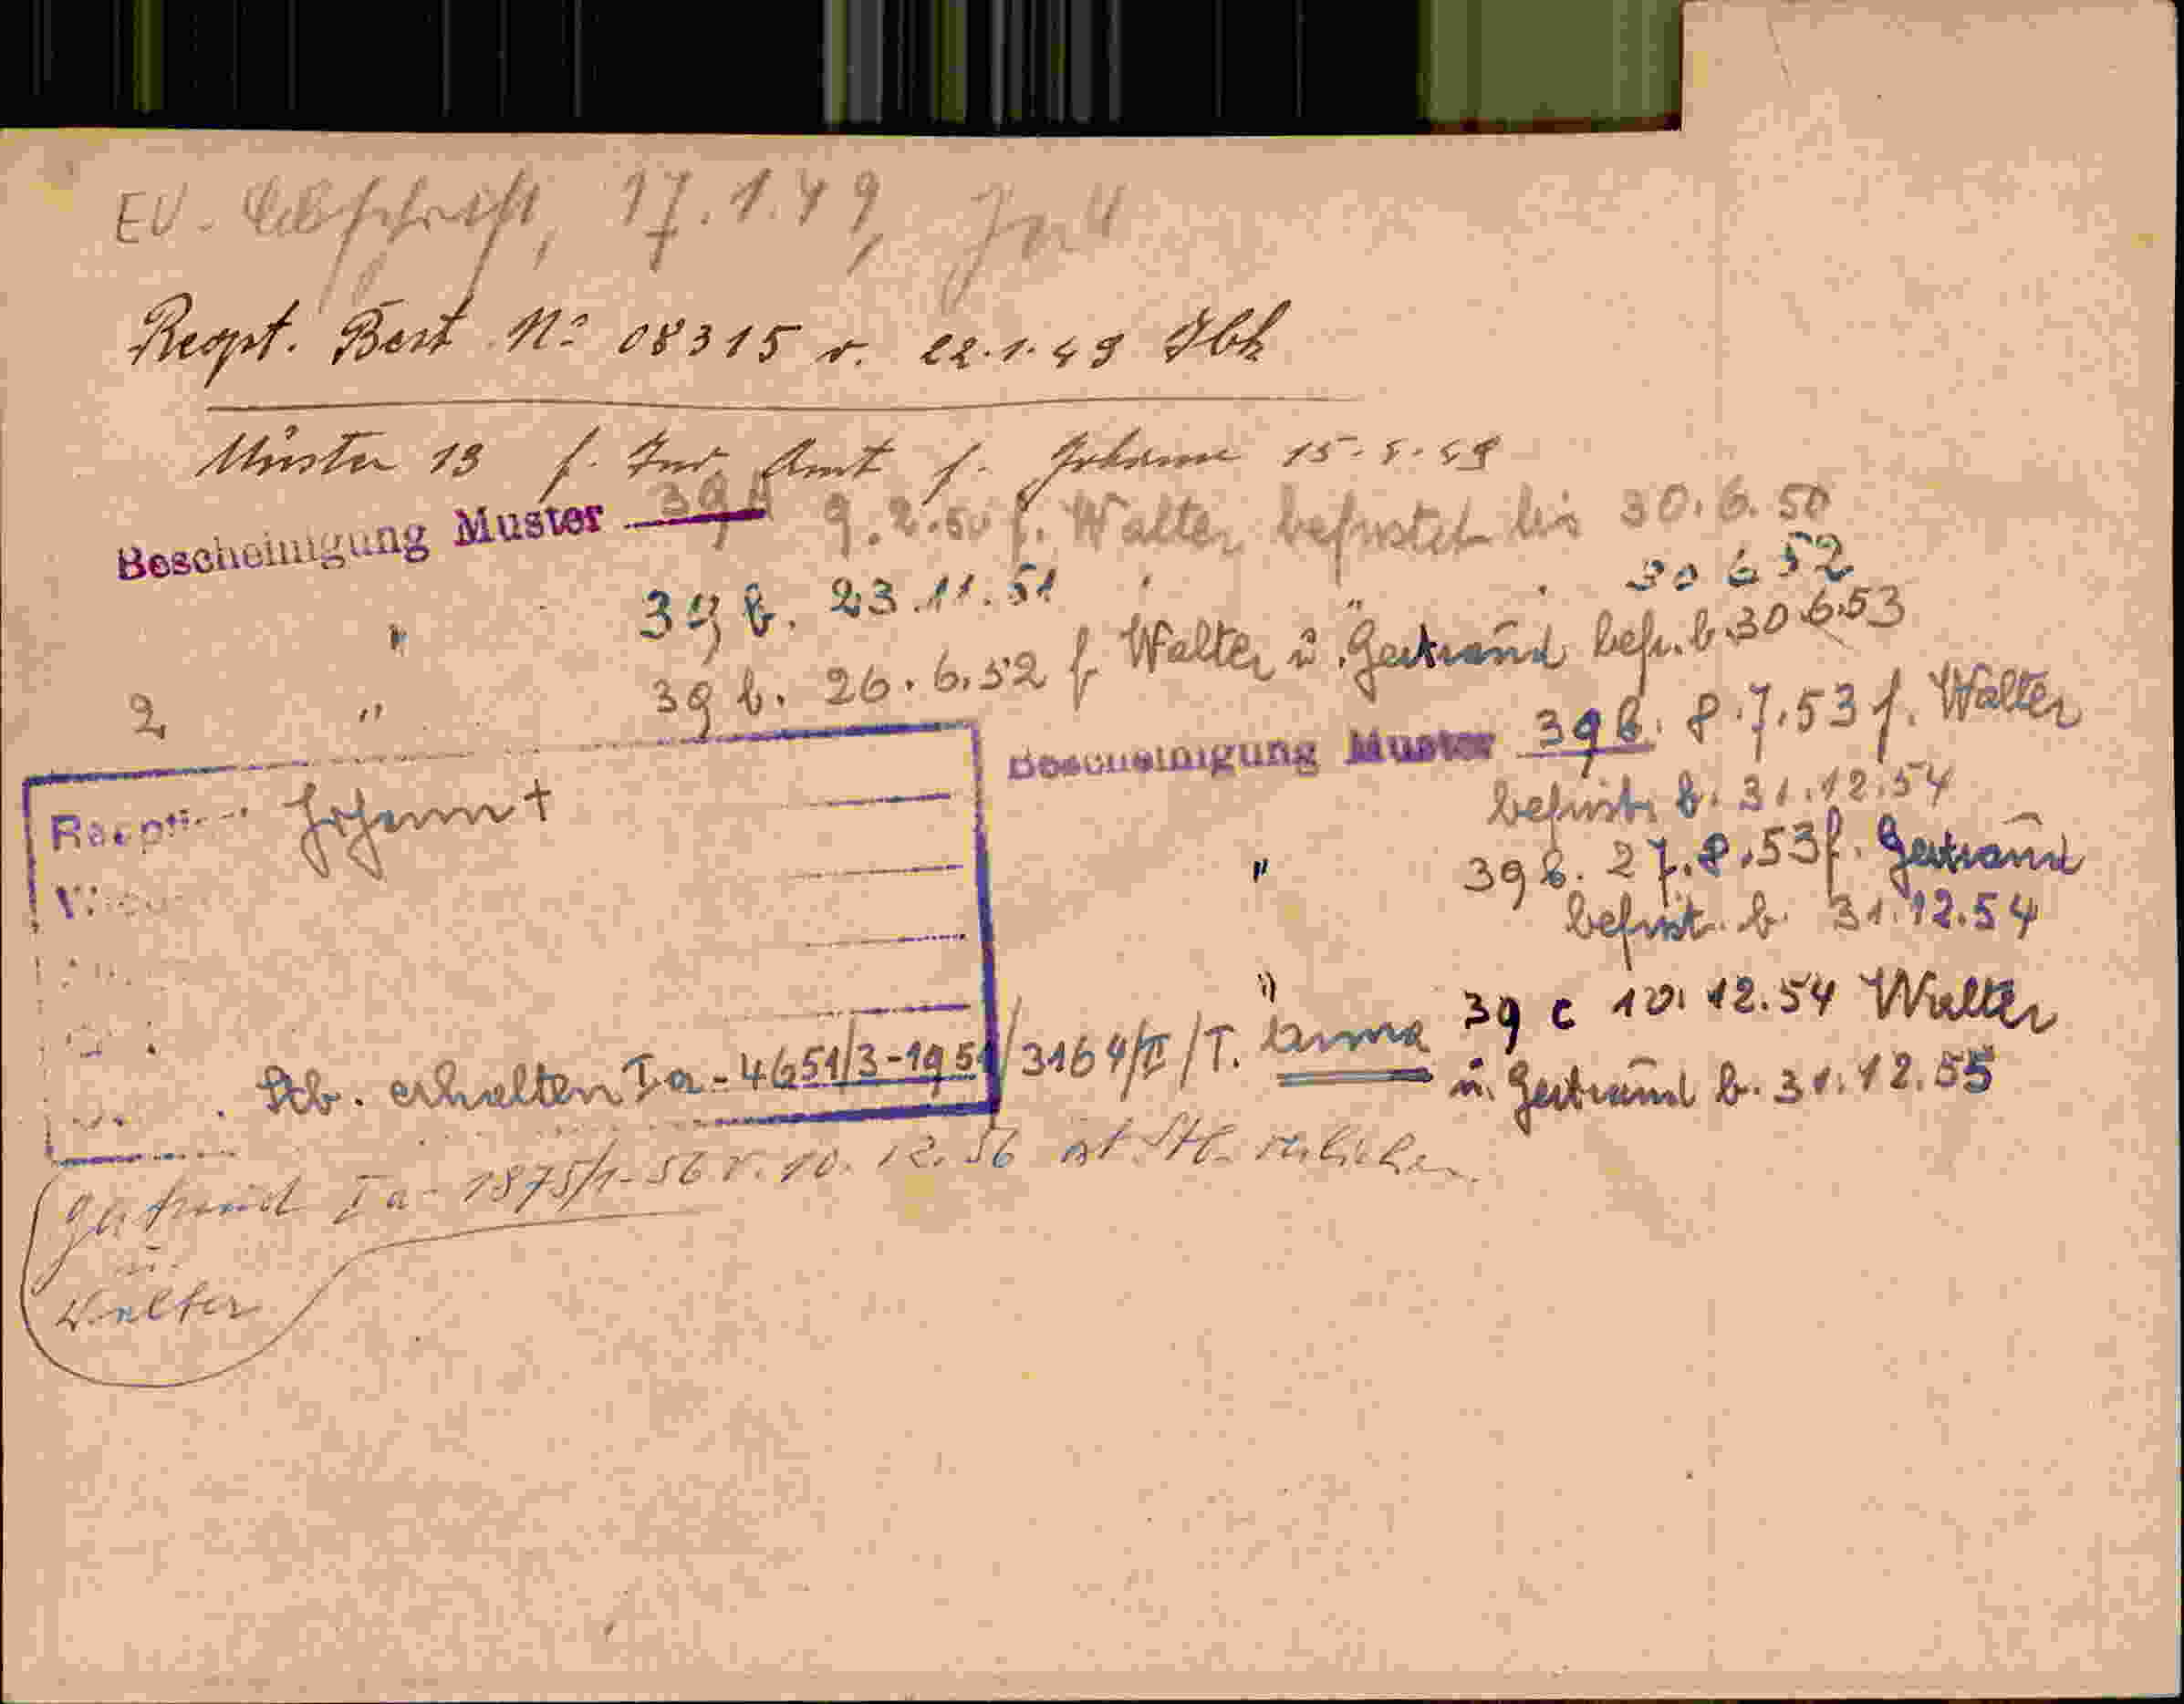 EV. Abschrift, 17.1.49,
Regst. Best. No 08315 v. 22.1.49
Muster 13 f. Amt f. Johann 15.5.59
Bescheinigung Muster 39 9.2.50 f. Walter befristet bis 30.6.50
" 39 b. 23.11.51 " " 30 6 52
2 " 39 b. 26.6.52 f Walter u. Gertraud befr. b. 30 6.53
Bescheinigung Muster 39 b. 8.7.53 f. Walter
befrist. b. 31.12.54
Johann †
" 39 b. 27.8.53 f. Gertraud
befrist. b. 31.12.54
" 39 c 10. 12.54 Walter
u. Gertraud b. 31.12.55
Stb. erhalten Ia - 4651/3-1951/3164/II/T. Anna
Gertraud Ia - 1875/1-56 v. 10. 12. 56 ist Stb. verliehen.
u.
Walter